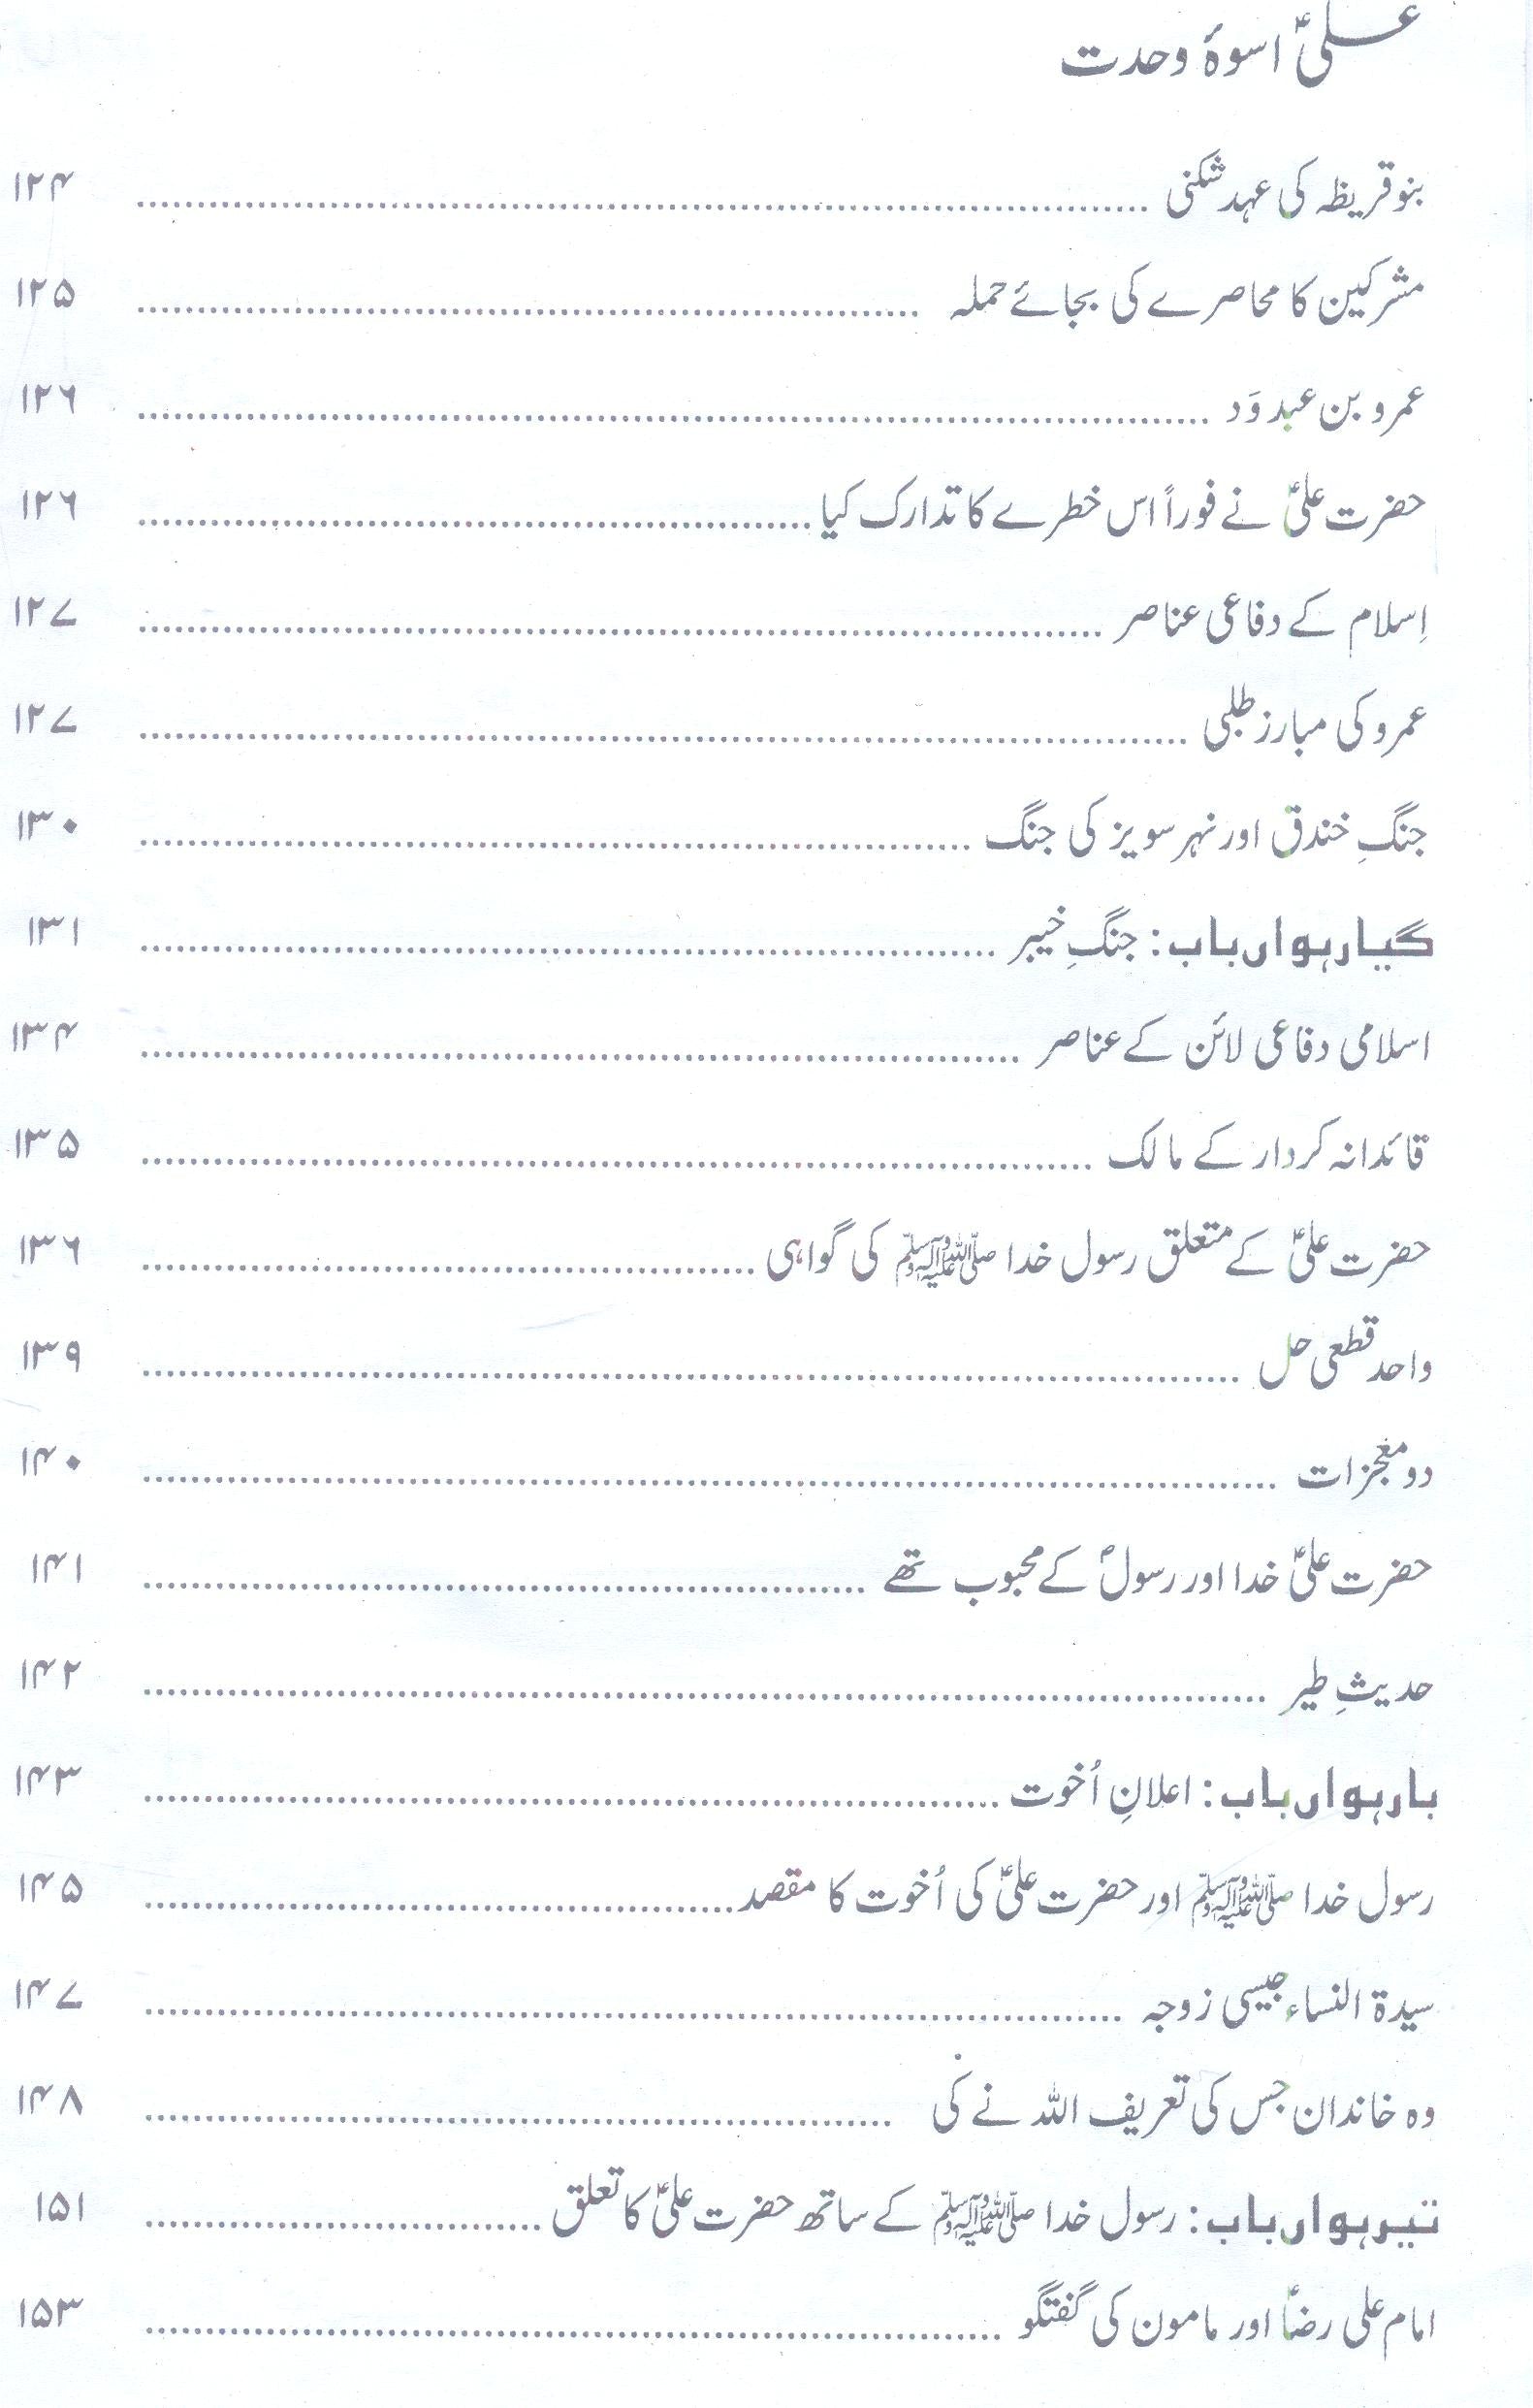 علیؑ اسوۂ وحدت
بنو قریظہ کی عہد شکنی ........ ۱۲۴
مشرکین کا محاصرے کی بجائے حملہ ........ ۱۲۵
عمرو بن عبدوَد ........ ۱۲۶
حضرت علیؑ نے فوراً اس خطرے کا تدارک کیا ........ ۱۲۶
اِسلام کے دفاعی عناصر ........ ۱۲۷
عمرو کی مبارز طلبی ........ ۱۲۷
جنگِ خندق اور نہر سویز کی جنگ ........ ۱۳۰
گیارہواں باب: جنگِ خیبر ........ ۱۳۱
اسلامی دفاعی لائن کے عناصر ........ ۱۳۴
قائدانہ کردار کے مالک ........ ۱۳۵
حضرت علیؑ کے متعلق رسول خدا ﷺ کی گواہی ........ ۱۳۶
واحد قطعی حل ........ ۱۳۹
دو معجزات ........ ۱۴۰
حضرت علیؑ خدا اور رسولؐ کے محبوب تھے ........ ۱۴۱
حدیثِ طیر ........ ۱۴۲
بارہواں باب: اعلانِ اُخوت ........ ۱۴۳
رسول خدا ﷺ اور حضرت علیؑ کی اُخوت کا مقصد ........ ۱۴۵
سیدۃ النساء جیسی زوجہ ........ ۱۴۷
وہ خاندان جس کی تعریف اللہ نے کی ........ ۱۴۸
تیرہواں باب: رسول خدا ﷺ کے ساتھ حضرت علیؑ کا تعلق ........ ۱۵۱
امام علی رضاؑ اور مامون کی گفتگو ........ ۱۵۳